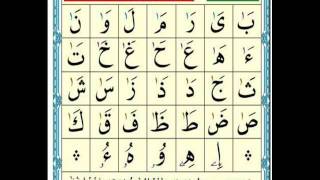 بٰ یٰ رٰ مٰ لٰ وٰ نٰ
ءٰ هٰ عٰ حٰ غٰ خٰ تٰ
ثٰ جٰ دٰ ذٰ زٰ سٰ شٰ
صٰ ضٰ طٰ ظٰ فٰ قٰ كٰ
إٖ هٖ وٗ هٗ ءٗ